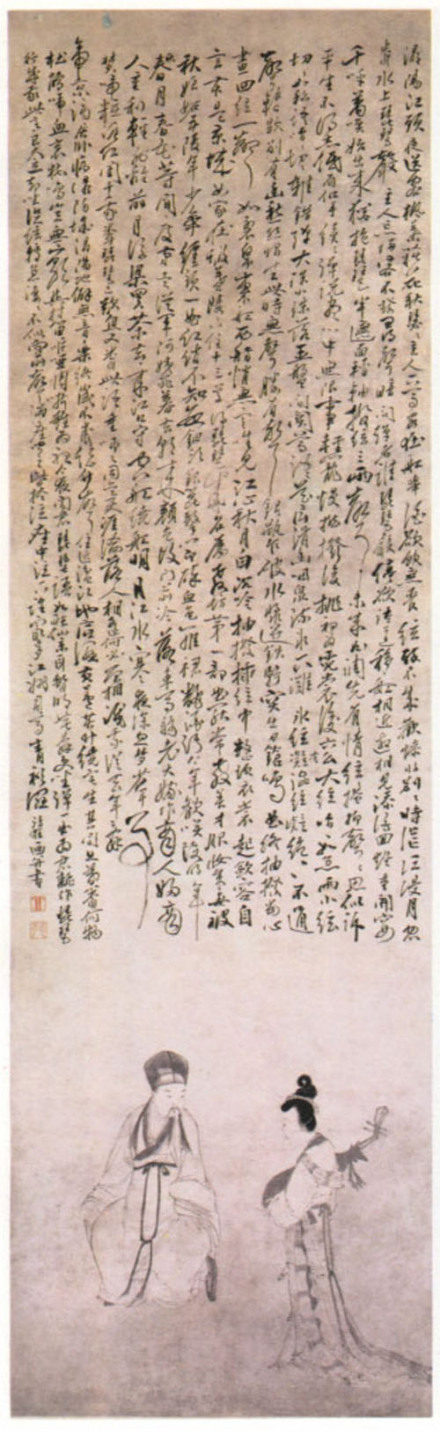 潯陽江頭夜送客楓葉荻花秋瑟瑟主人下馬客在船舉酒欲飲無管絃醉不成歡慘將別別時茫茫江浸月忽
聞水上琵琶聲主人忘歸客不發尋聲暗問彈者誰琵琶聲停欲語遲移船相近邀相見添酒回燈重開宴
千呼萬喚始出來猶抱琵琶半遮面轉軸撥絃三兩聲未成曲調先有情絃絃掩抑聲聲思似訴
平生不得志低眉信手續續彈說盡心中無限事輕攏慢撚撥復挑初為霓裳後六幺大絃嘈嘈如急雨小絃
切切如私語嘈嘈切切錯雜彈大珠小珠落玉盤間關鶯語花底滑幽咽泉流水下灘水泉冷澀絃凝絕凝絕不通
聲暫歇別有幽愁暗恨生此時無聲勝有聲銀瓶乍破水漿迸鐵騎突出刀鎗鳴曲終抽撥當心
畫四絃一聲如裂帛東船西舫悄無言唯見江心秋月白沉吟抽撥插絃中整頓衣裳起斂容自
言本是京城女家在蝦蟆陵下住十三學得琵琶成名屬教坊第一部曲罷常教善才服妝成每被
秋娘妒五陵年少爭纏頭一曲紅綃不知數鈿頭銀篦擊節碎血色羅裙翻酒污今年歡笑復明年
秋月春風等閒度弟走從軍阿姨死暮去朝來顏色故門前冷落車馬稀老大嫁作商人婦商
人重利輕別離前月浮梁買茶去去來江口守空船繞船明月江水寒夜深忽夢少年事
夢啼妝淚紅闌干我聞琵琶已歎息又聞此語重唧唧同是天涯淪落人相逢何必曾相識我從去年辭
帝京謫居臥病潯陽城潯陽地僻無音樂終歲不聞絲竹聲住近湓江地低濕黃蘆苦竹繞宅生其間旦暮聞何物